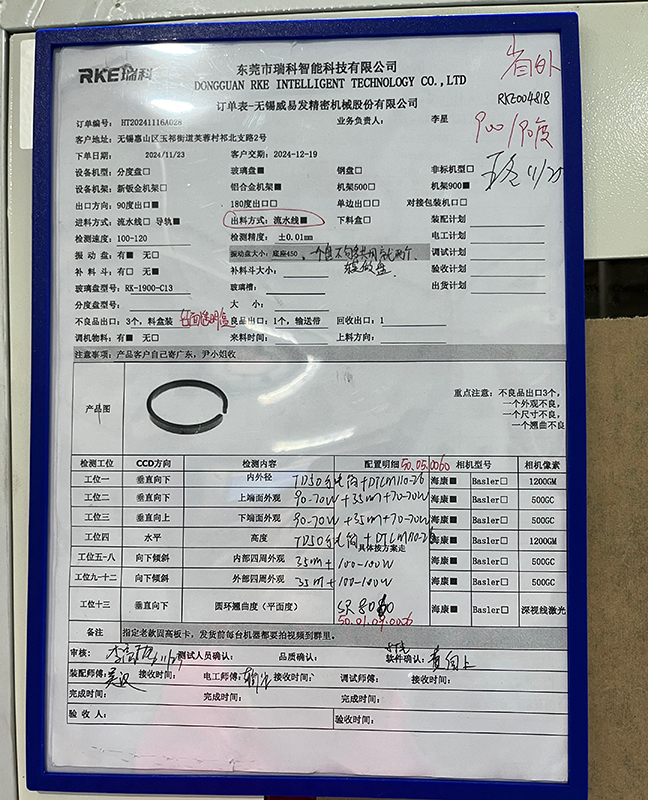 RKE瑞科
东莞市瑞科智能科技有限公司
DONGGUAN RKE INTELLIGENT TECHNOLOGY CO.,LTD
订单表-无锡威易发精密机械股份有限公司
省外
RKE004818
900/90度
11/25
订单编号: HT20241116A028 业务负责人: 李星
客户地址: 无锡惠山区玉祁街道芙蓉村祁北支路2号
下单日期: 2024/11/23 客户交期: 2024-12-19
设备机型: 分度盘□ 玻璃盘■ 钢盘□ 非标机型□
设备机架: 新钣金机架□ 铝合金机架■ 机架500□ 机架900■
出口方向: 90度出口■ 180度出口□ 单边出口□ 对接包装机口□
进料方式: 流水线□ 导轨■ 出料方式: 流水线■ 下料盒□ 装配计划
检测速度: 100-120 检测精度: ±0.01mm 电工计划
振动盘: 有■ 无□ 振动盘大小: 底座450, 调试计划
补料斗: 有□ 无■ 补料斗大小: 验收计划
玻璃盘型号: RK-1900-C13 玻璃槽: 出货计划
分度盘型号: 大 小:
不良品出口: 3个, 料盒装 良品出口: 1个, 输送带 回收出口: 1
调机物料: 有■ 无□ 来料时间: 上料方向:
注意事项: 产品客户自己寄广东, 尹小姐收
产品图
重点注意: 不良品出口3个,
一个外观不良,
一个尺寸不良,
一个翘曲不良
检测工位 CCD方向 检测内容 配置明细 50.05.0060 相机型号 相机像素
工位一 垂直向下 内外径 海康■ Basler□ 1200GM
工位二 垂直向下 上端面外观 90-70W+35m+70-70W 海康■ Basler□ 500GC
工位三 垂直向上 下端面外观 90-70W+35m+70-70W 海康■ Basler□ 500GC
工位四 水平 高度 海康■ Basler□ 1200GM
具体按方案走
工位五-八 向下倾斜 内部四周外观 35m+100-100W 海康■ Basler□ 500GC
工位九-十二 向下倾斜 外部四周外观 35m+100-100W 海康■ Basler□ 500GC
工位十三 垂直向下 圆环翘曲度(平面度) 海康■ Basler□ 深视线激光
备注 指定老款固高板卡, 发货前每台机器都要拍视频到群里。
审核: 测试人员确认: 品质确认: 软件确认:
装配师傅: 接收时间: 电工师傅: 接收时间: 调试师傅: 接收时间:
完成时间: 完成时间: 完成时间:
验收人: 验收时间: